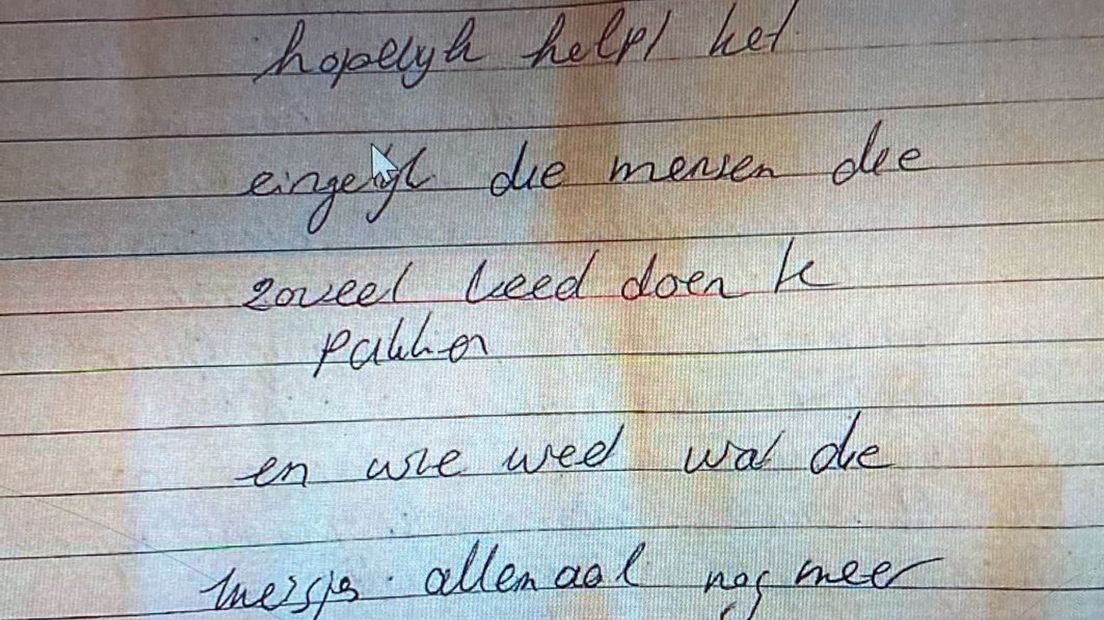 hopelijk helpt het
eingelijk die mensen die
zoveel leed doen te
pakken
en wie weed wat die
meisjes allemaal nog meer